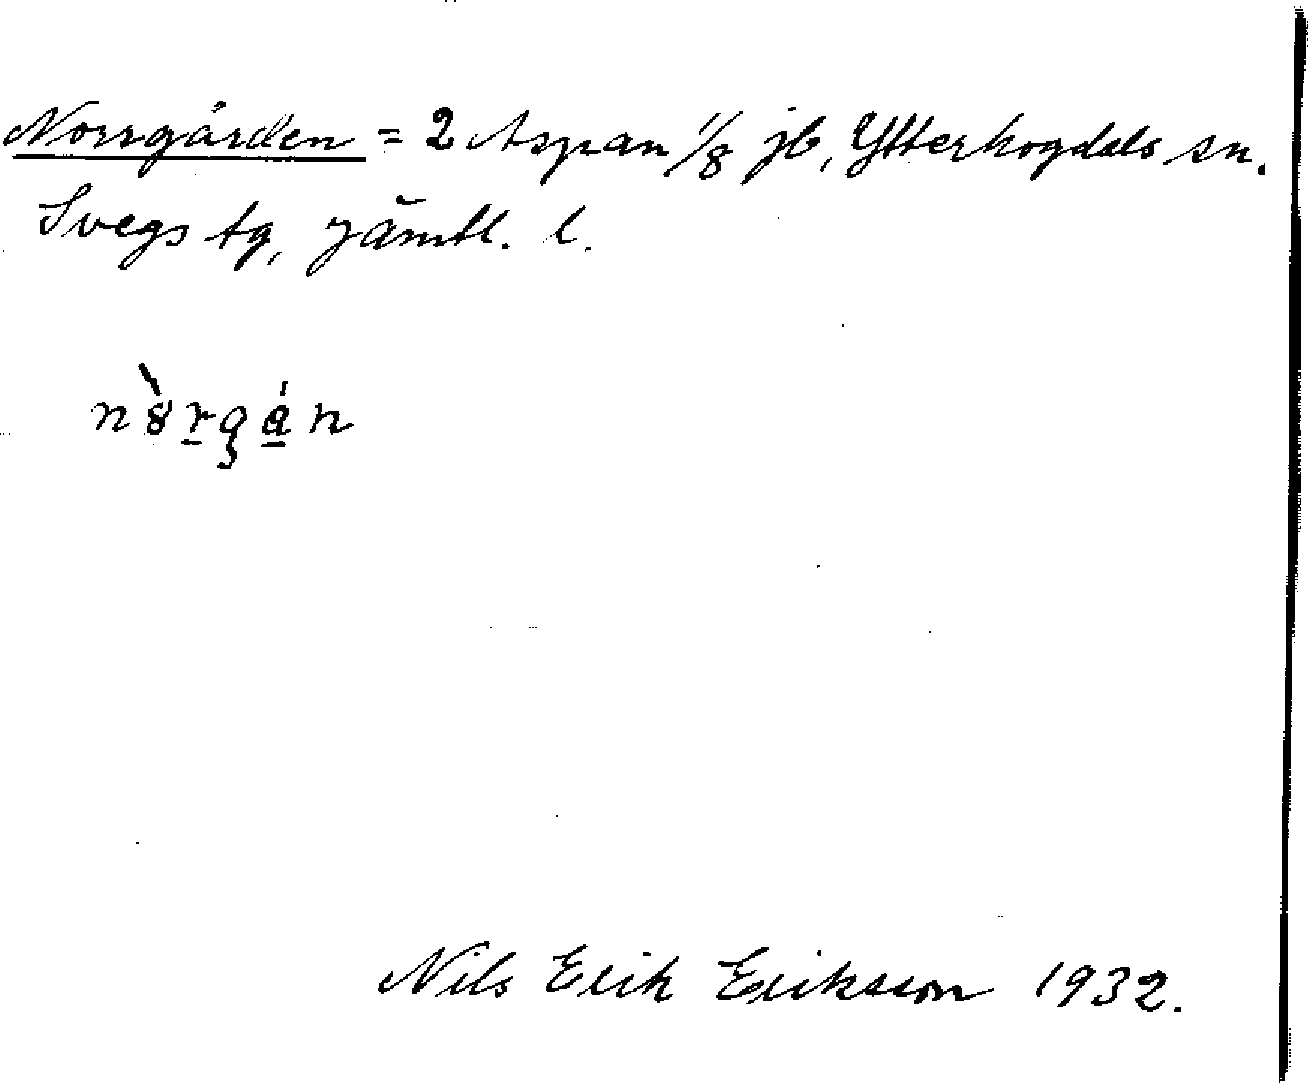 Norrgården = 2 Aspan 1/8 jb, Ytterhogdals sn.
Svegs tg, Jämtl. l.
Nils Erik Eriksson 1932.